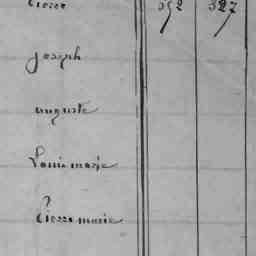 Pierre 592 527
Joseph
auguste
Louis marie
Pierre marie